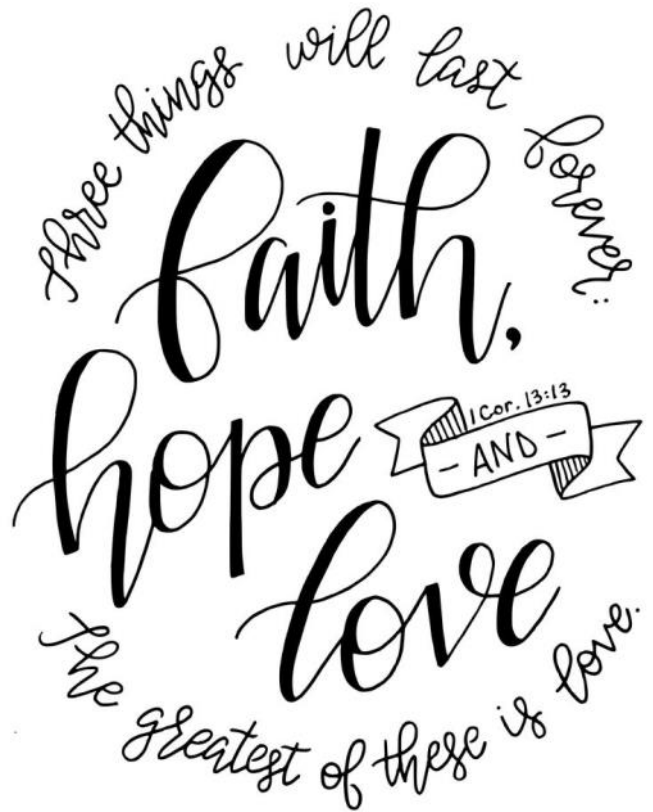 three things will last forever:
faith,
hope
1 Cor. 13:13
- AND -
love
the greatest of these is love.